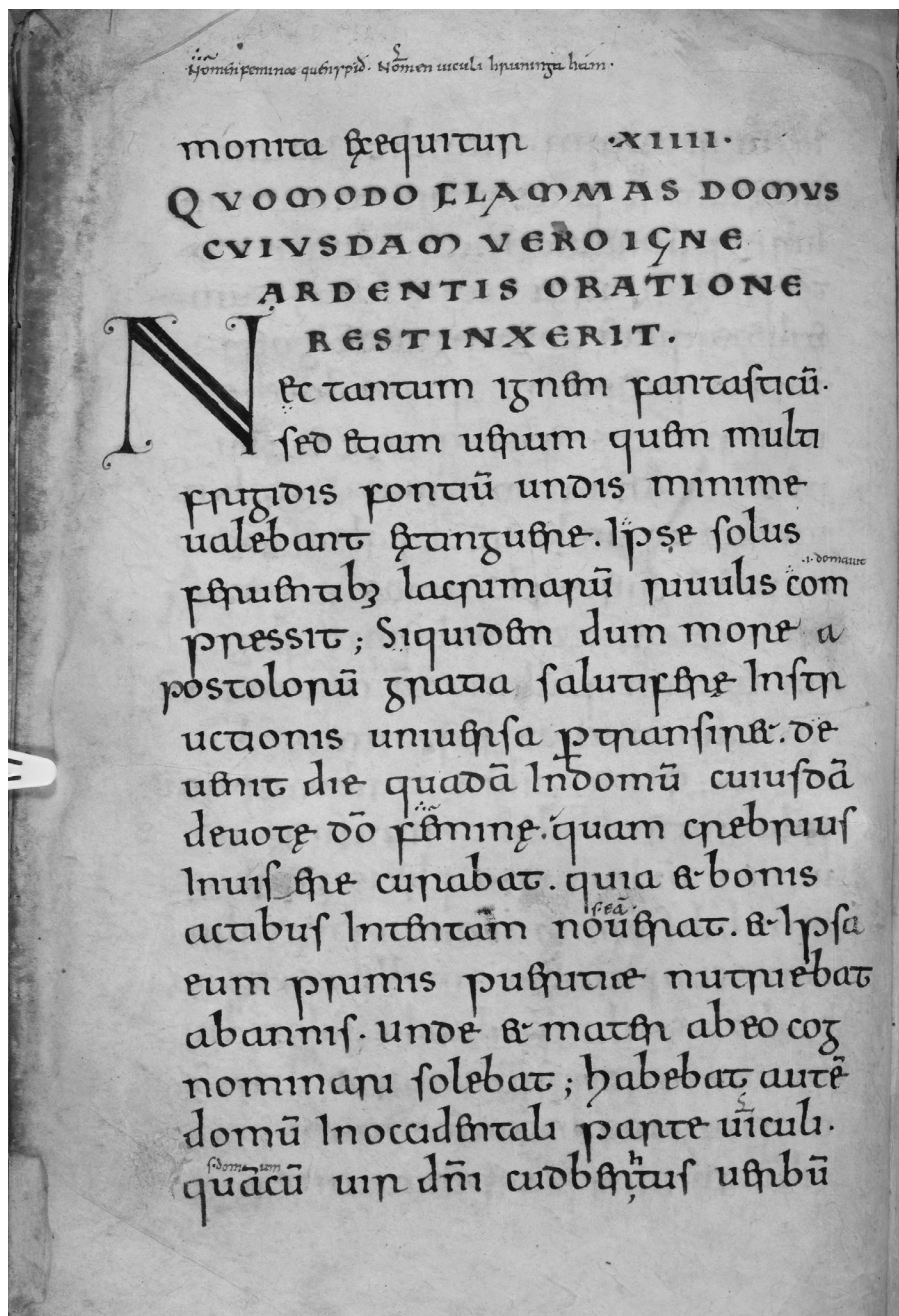 Nomen feminae quensƿið. Nomen uiculi hruninga ham.
monita exequitur ·XIIII·
QVOMODO FLAMMAS DOMVS
CVIVSDAM VERO IGNE
ARDENTIS ORATIONE
RESTINXERIT.
Nec tantum ignem fantasticū.
sed etiam uerum quem multi
frigidis fontiū undis minime
ualebant extinguere. Ipse solus
feruentibꝫ lacrimarū riuulis com
.i. domauit
pressit; Siquidem dum more a
postolorū gratia salutiferę Instr
uctionis uniuersa ꝑtransir&. de
uenit die quadā Indomū cuiusdā
deuotę dō feminę. quam crebrius
Inuisere curabat. quia & bonis
actibus Intentam nouerat. & Ipsa
s. eā
eum primis pueritiæ nutriebat
abannis. unde & mater abeo cog
nominari solebat; habebat autē
domū Inoccidentali parte uiculi.
s. domum
quācū uir dn̄i cudberhtus uerbū